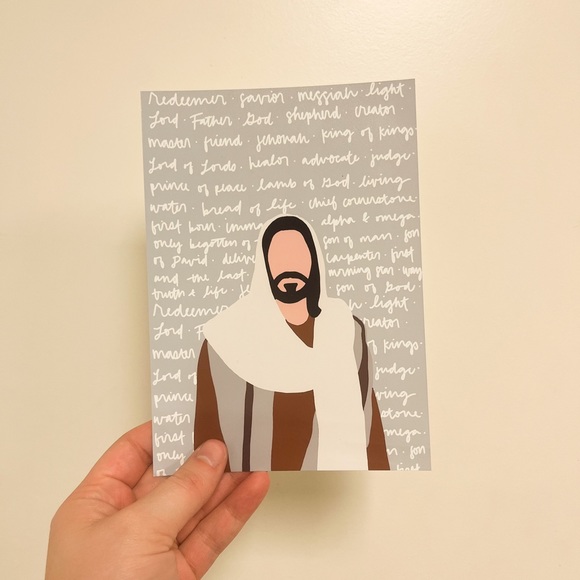 Redeemer · savior · messiah · light ·
Lord · Father · God · shepherd · creator ·
master · friend · jehovah · king of kings ·
Lord of Lords · healor · advocate · judge ·
prince of peace · lamb of God · living
water · bread of life · chief cornerstone ·
first born · alpha & omega ·
only begotten of son of man · son
of David · carpenter · first
and the last · way
truth & life · son of God ·
Redeemer · light ·
Lord ·
master · kings ·
Lord of judge ·
prince
water
first
only son
of first